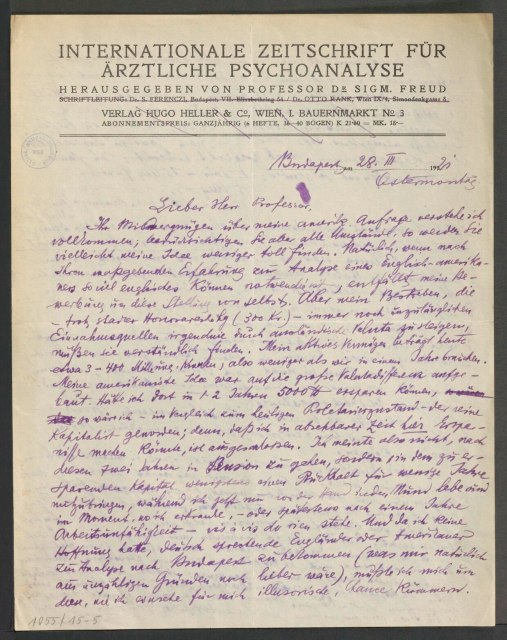 INTERNATIONALE ZEITSCHRIFT FÜR
ÄRZTLICHE PSYCHOANALYSE
HERAUSGEGEBEN VON PROFESSOR DR SIGM. FREUD
SCHRIFTLEITUNG: Dr. S. FERENCZI, Budapest, VII. Elisabethring 54 / Dr. OTTO RANK, Wien IX/4, Simondenkgasse 8
VERLAG HUGO HELLER & Co, WIEN, I. BAUERNMARKT No 3
ABONNEMENTSPREIS: GANZJÄHRIG (6 HEFTE, 36-40 BOGEN) K 21·60 = MK. 18·—
Budapest, am 28. III 1921
Ostermontag
Lieber Herr Professor,
Ihr Missvergnügen über meine amerik. Anfrage verstehe ich
vollkommen; berücksichtigen Sie aber alle Umstände, so werden Sie
vielleicht meine Idee weniger toll finden. Natürlich, wenn nach
Ihrer maßgebenden Erfahrung zur Analyse eines Englisch-amerika-
ners soviel englisches Können notwendig ist, entfällt meine Be-
werbung um diese Stellung von selbst. Aber mein Bestreben, die
– trotz hoher Honorierung (300 Kr.) – immer noch unzulänglichen
Einnahmsquellen irgendwie durch ausländische Valuta zu steigern,
müßten Sie verständlich finden. Mein aktives Vermögen beträgt heute
etwa 3–400 Kronen, also weniger als wir in einem Jahr brauchen.
Meine amerikanische Idee war auf die große Valutadifferenz aufge-
baut. Hätte ich dort in 1–2 Jahren 5000 ersparen können,
so wäre ich – im Vergleich zum heutigen Proletarierzustand – der reine
Kapitalist geworden; denn, daß ich in absehbarer Zeit hier Erspar-
nisse machen könnte, ist ausgeschlossen. Ich meinte also nicht, nach
diesen zwei Jahren in Pension zu gehen, sondern in dem zu er-
sparenden Kapital wenigstens einen Rückhalt für wenige Jahre
mitzubringen, während ich jetzt von der Hand in den Mund lebe und
im Moment, wo ich erkranke, – oder spätestens nach einem Jahre
Arbeitsunfähigkeit – vis à vis de rien stehe. Und da ich keine
Hoffnung hatte, deutsch sprechende Engländer oder Amerikaner
zur Analyse nach Budapest zu bekommen (was mir natürlich
aus unzähligen Gründen noch lieber wäre), mußte ich mich um
den, wie ich einsehe für mich illusorische, Chance kümmern.
1055/15-5